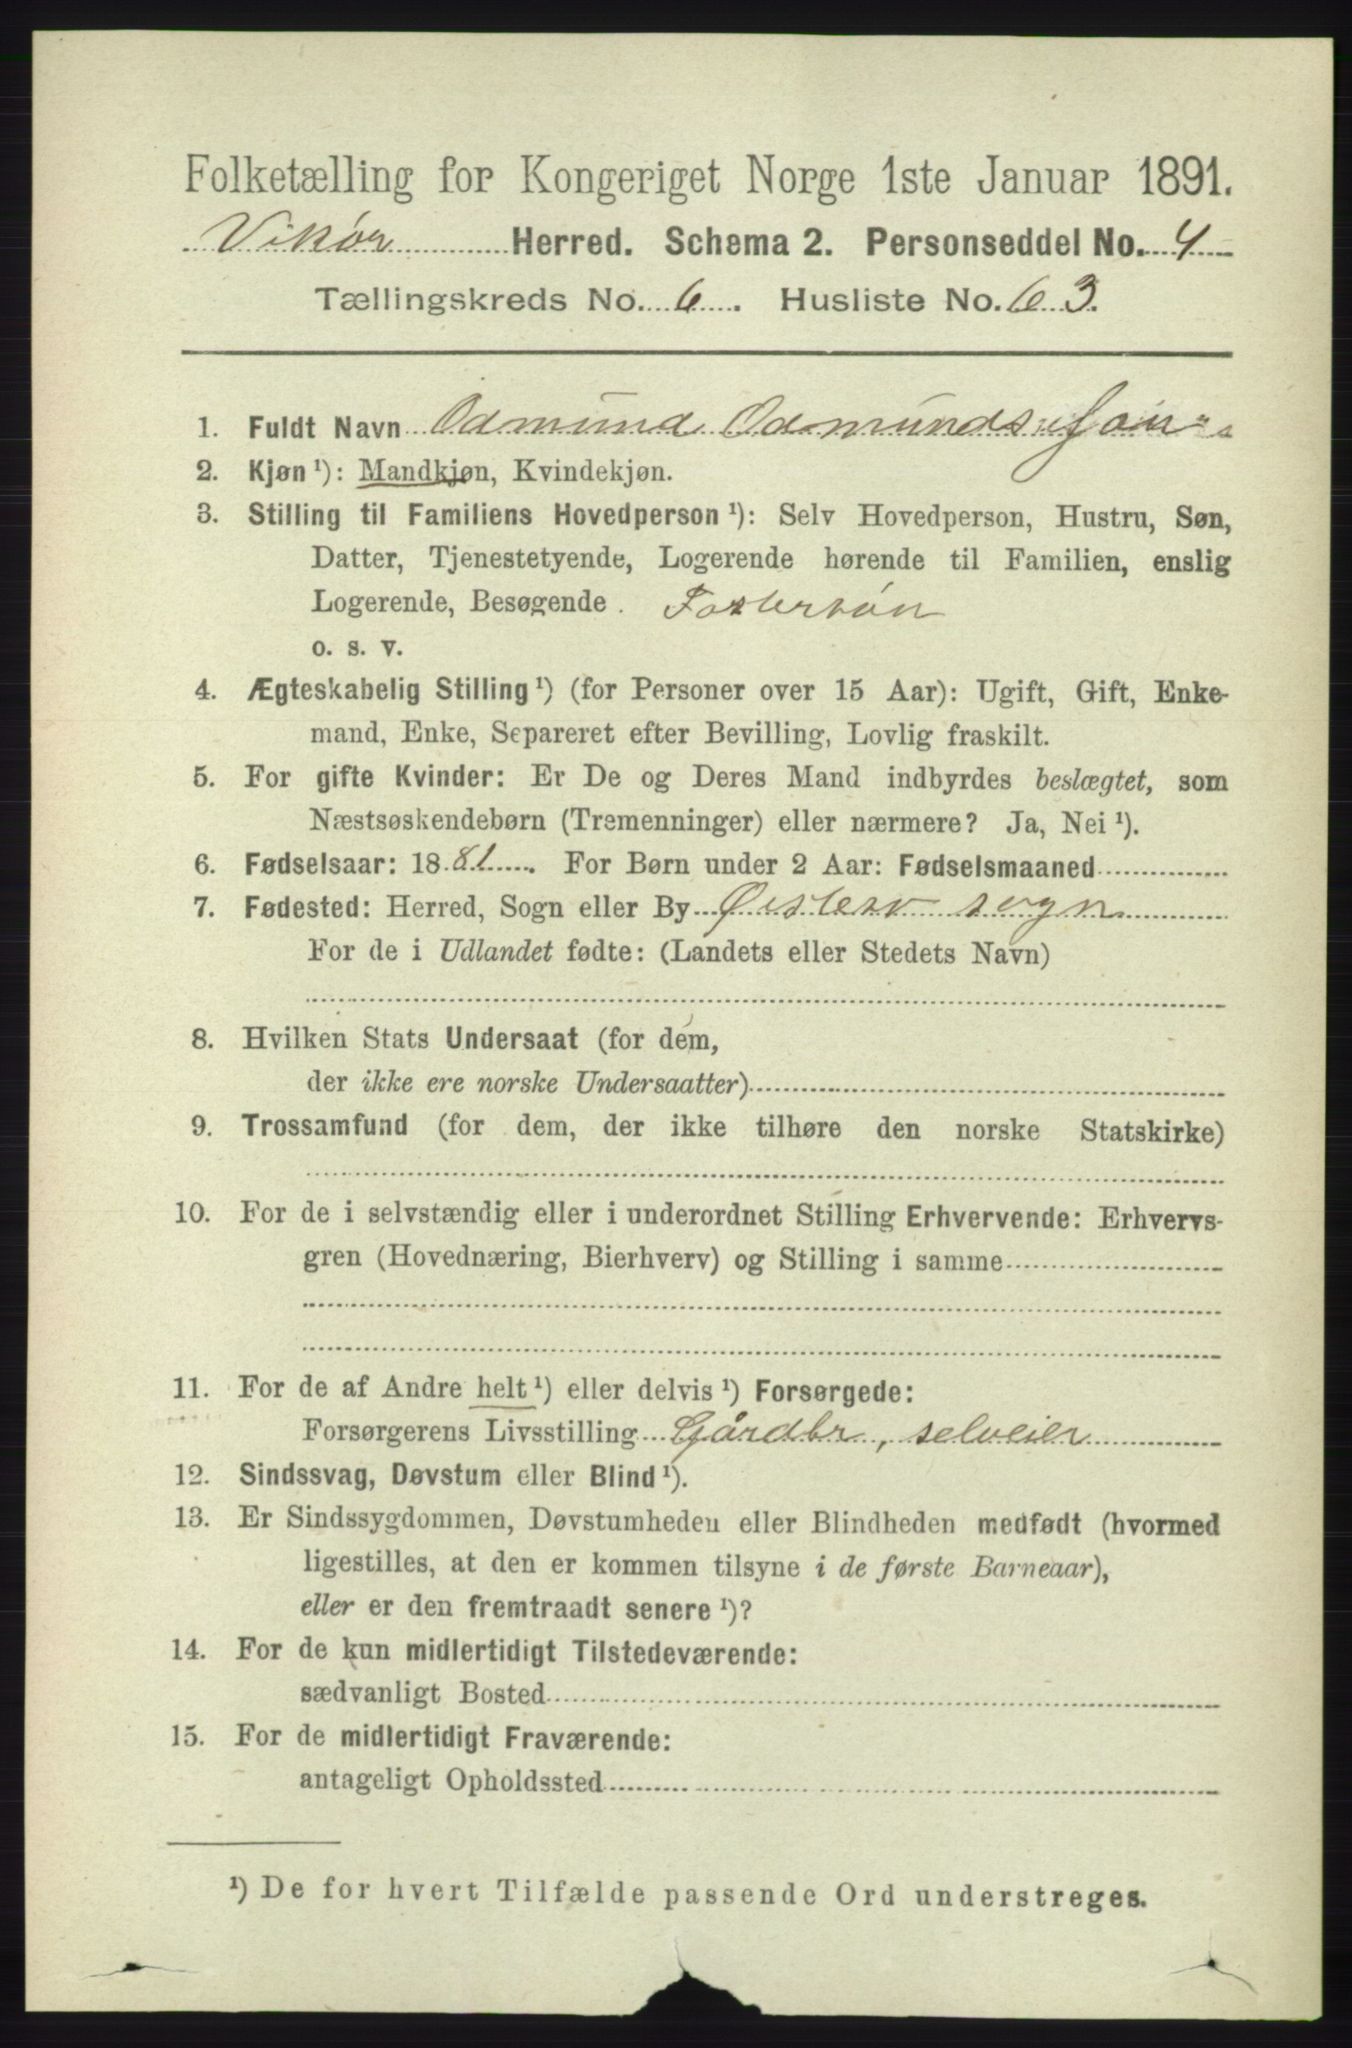 Folketælling for Kongeriget Norge 1ste Januar 1891.
Vikør Herred. Schema 2. Personseddel No. 4
Tællingskreds No. 6. Husliste No. 63.
1. Fuldt Navn Odmund Odmunds
2. Kjøn¹): Mandkjøn, Kvindekjøn.
3. Stilling til Familiens Hovedperson¹): Selv Hovedperson, Hustru, Søn,
Datter, Tjenestetyende, Logerende hørende til Familien, enslig
Logerende, Besøgende. Fostersøn
o. s. v.
4. Ægteskabelig Stilling¹) (for Personer over 15 Aar): Ugift, Gift, Enke-
mand, Enke, Separeret efter Bevilling, Lovlig fraskilt.
5. For gifte Kvinder: Er De og Deres Mand indbyrdes beslægtet, som
Næstsøskendebørn (Tremenninger) eller nærmere? Ja, Nei¹).
6. Fødselsaar: 1881. For Børn under 2 Aar: Fødselsmaaned
7. Fødested: Herred, Sogn eller By Øistesø sogn
For de i Udlandet fødte: (Landets eller Stedets Navn)
8. Hvilken Stats Undersaat (for dem,
der ikke ere norske Undersaatter)
9. Trossamfund (for dem, der ikke tilhøre den norske Statskirke)
10. For de i selvstændig eller i underordnet Stilling Erhvervende: Erhvervs-
gren (Hovednæring, Bierhverv) og Stilling i samme
11. For de af Andre helt¹) eller delvis¹) Forsørgede:
Forsørgerens Livsstilling Gårdbr, selveier
12. Sindssvag, Døvstum eller Blind¹).
13. Er Sindssygdommen, Døvstumheden eller Blindheden medfødt (hvormed
ligestilles, at den er kommen tilsyne i de første Barneaar),
eller er den fremtraadt senere¹)?
14. For de kun midlertidigt Tilstedeværende:
sædvanligt Bosted
15. For de midlertidigt Fraværende:
antageligt Opholdssted
¹) De for hvert Tilfælde passende Ord understreges.